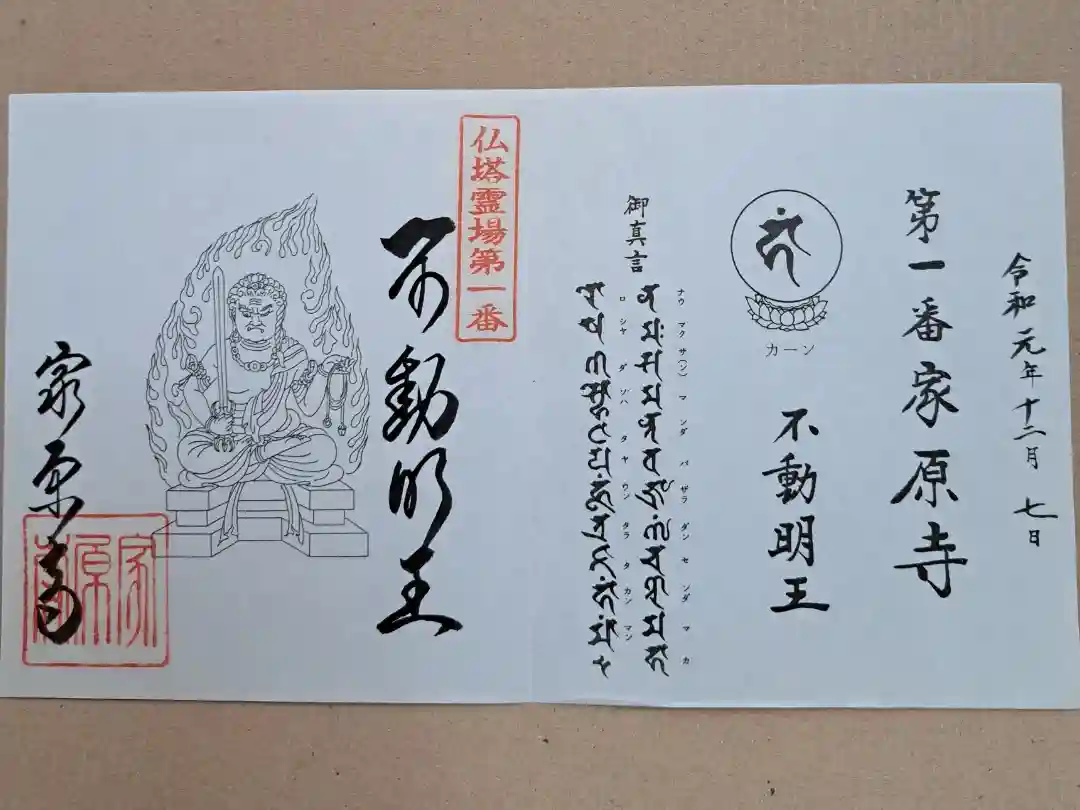 令和元年十二月 七日
第一番家原寺
カーン
不動明王
御真言
ナウ マク サ(ン) マ ンダ バ ザラ ダン セ ンダ マ カ
ロ シャ ダ ソハ タ ヤ ウン タラ タ カン マン
仏塔霊場第一番
不動明王
家原寺